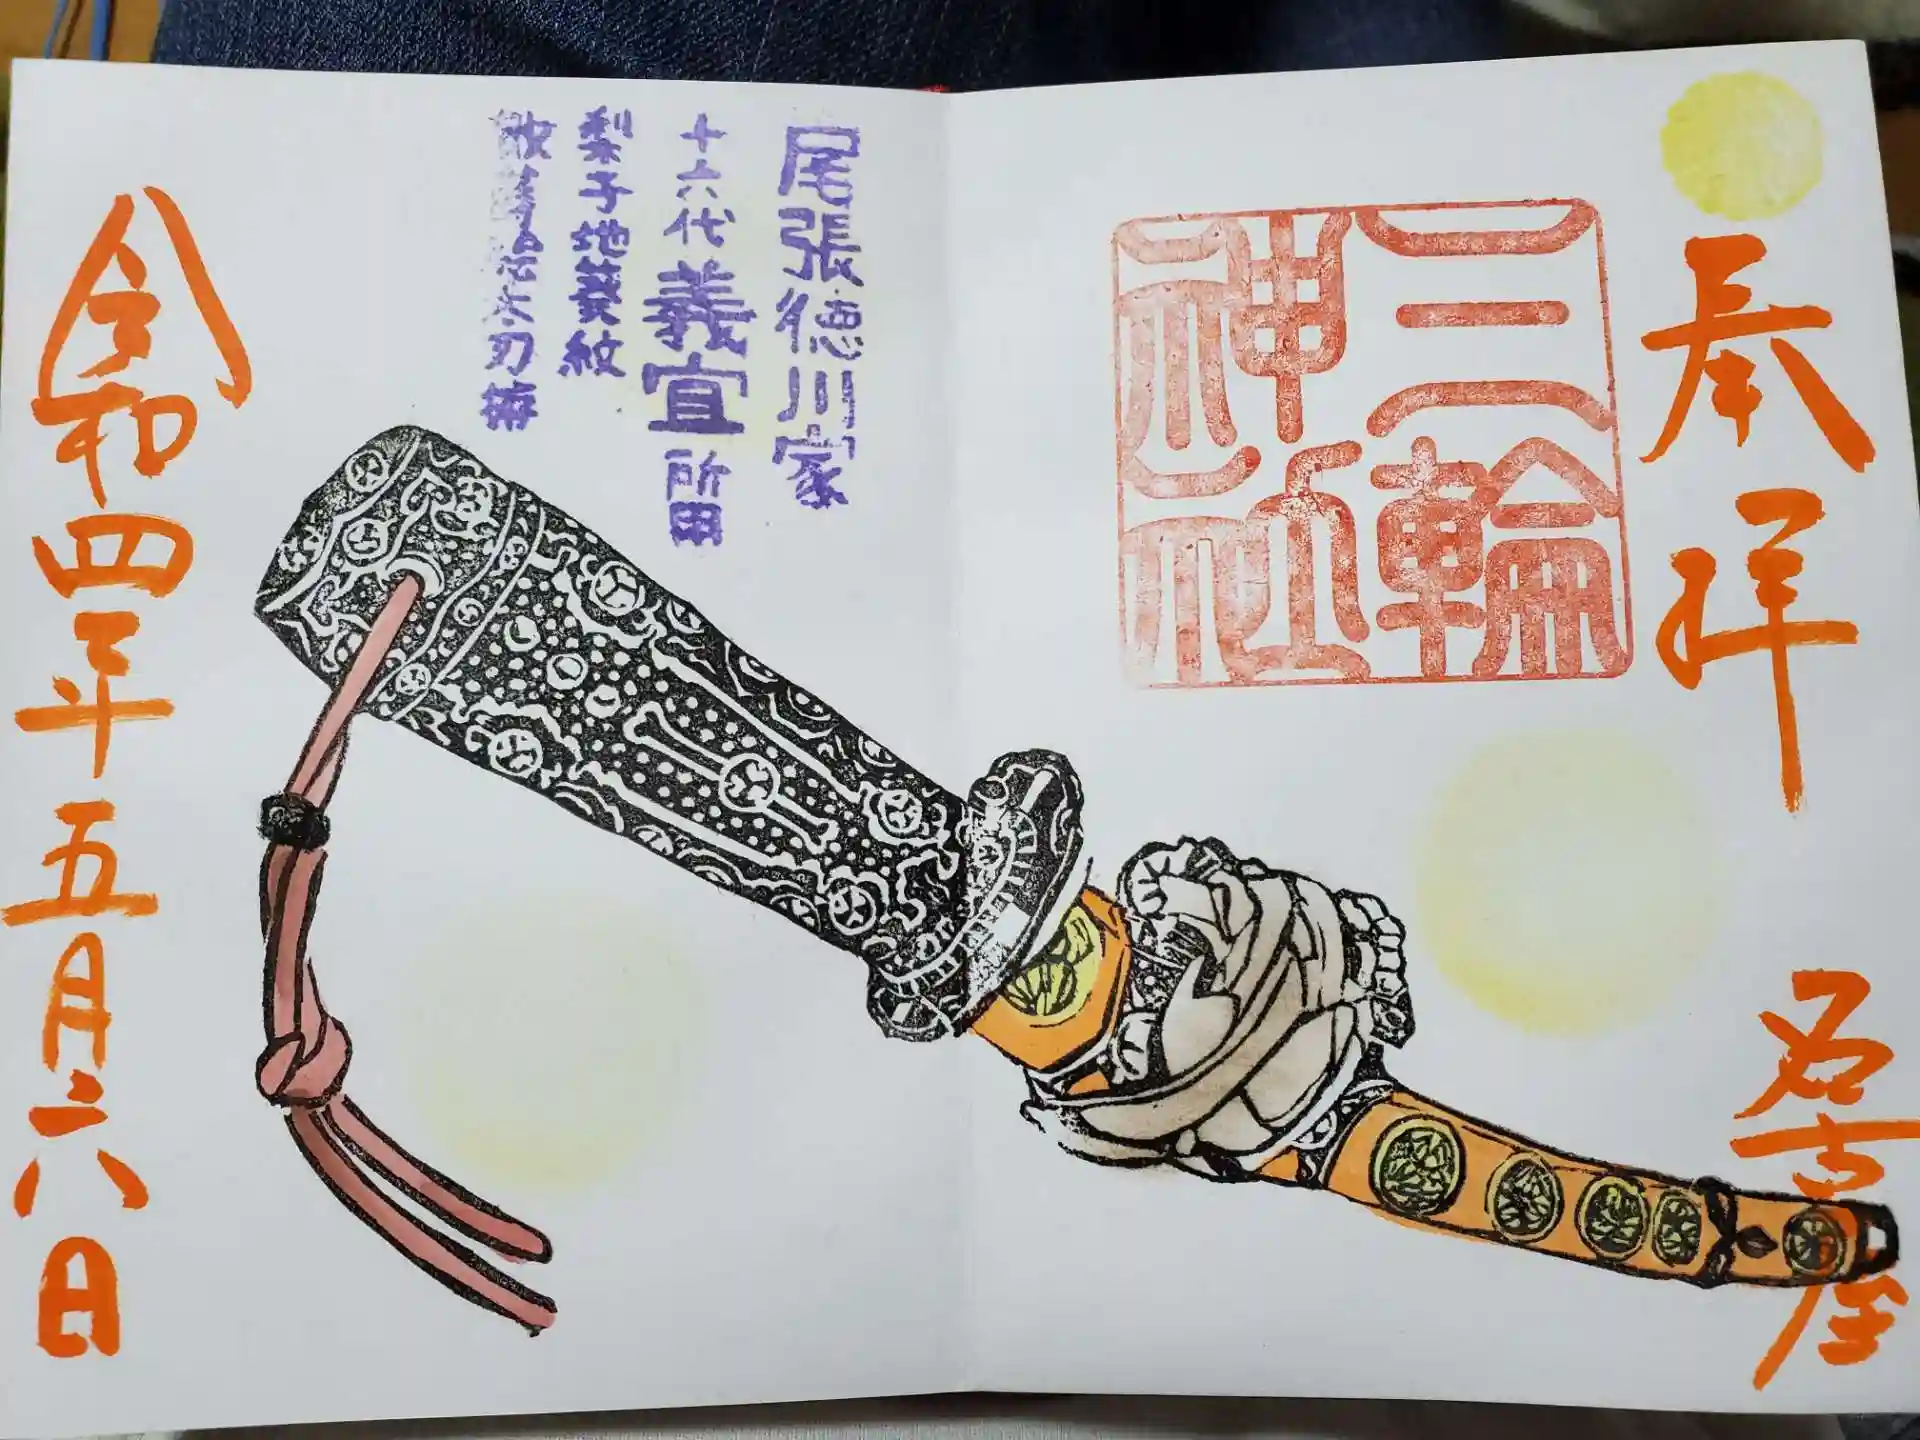 奉拝
三輪
神社
名古屋
尾張徳川家
十六代義宜所用
梨子地葵紋
散
太刀拵
令和四年五月六日